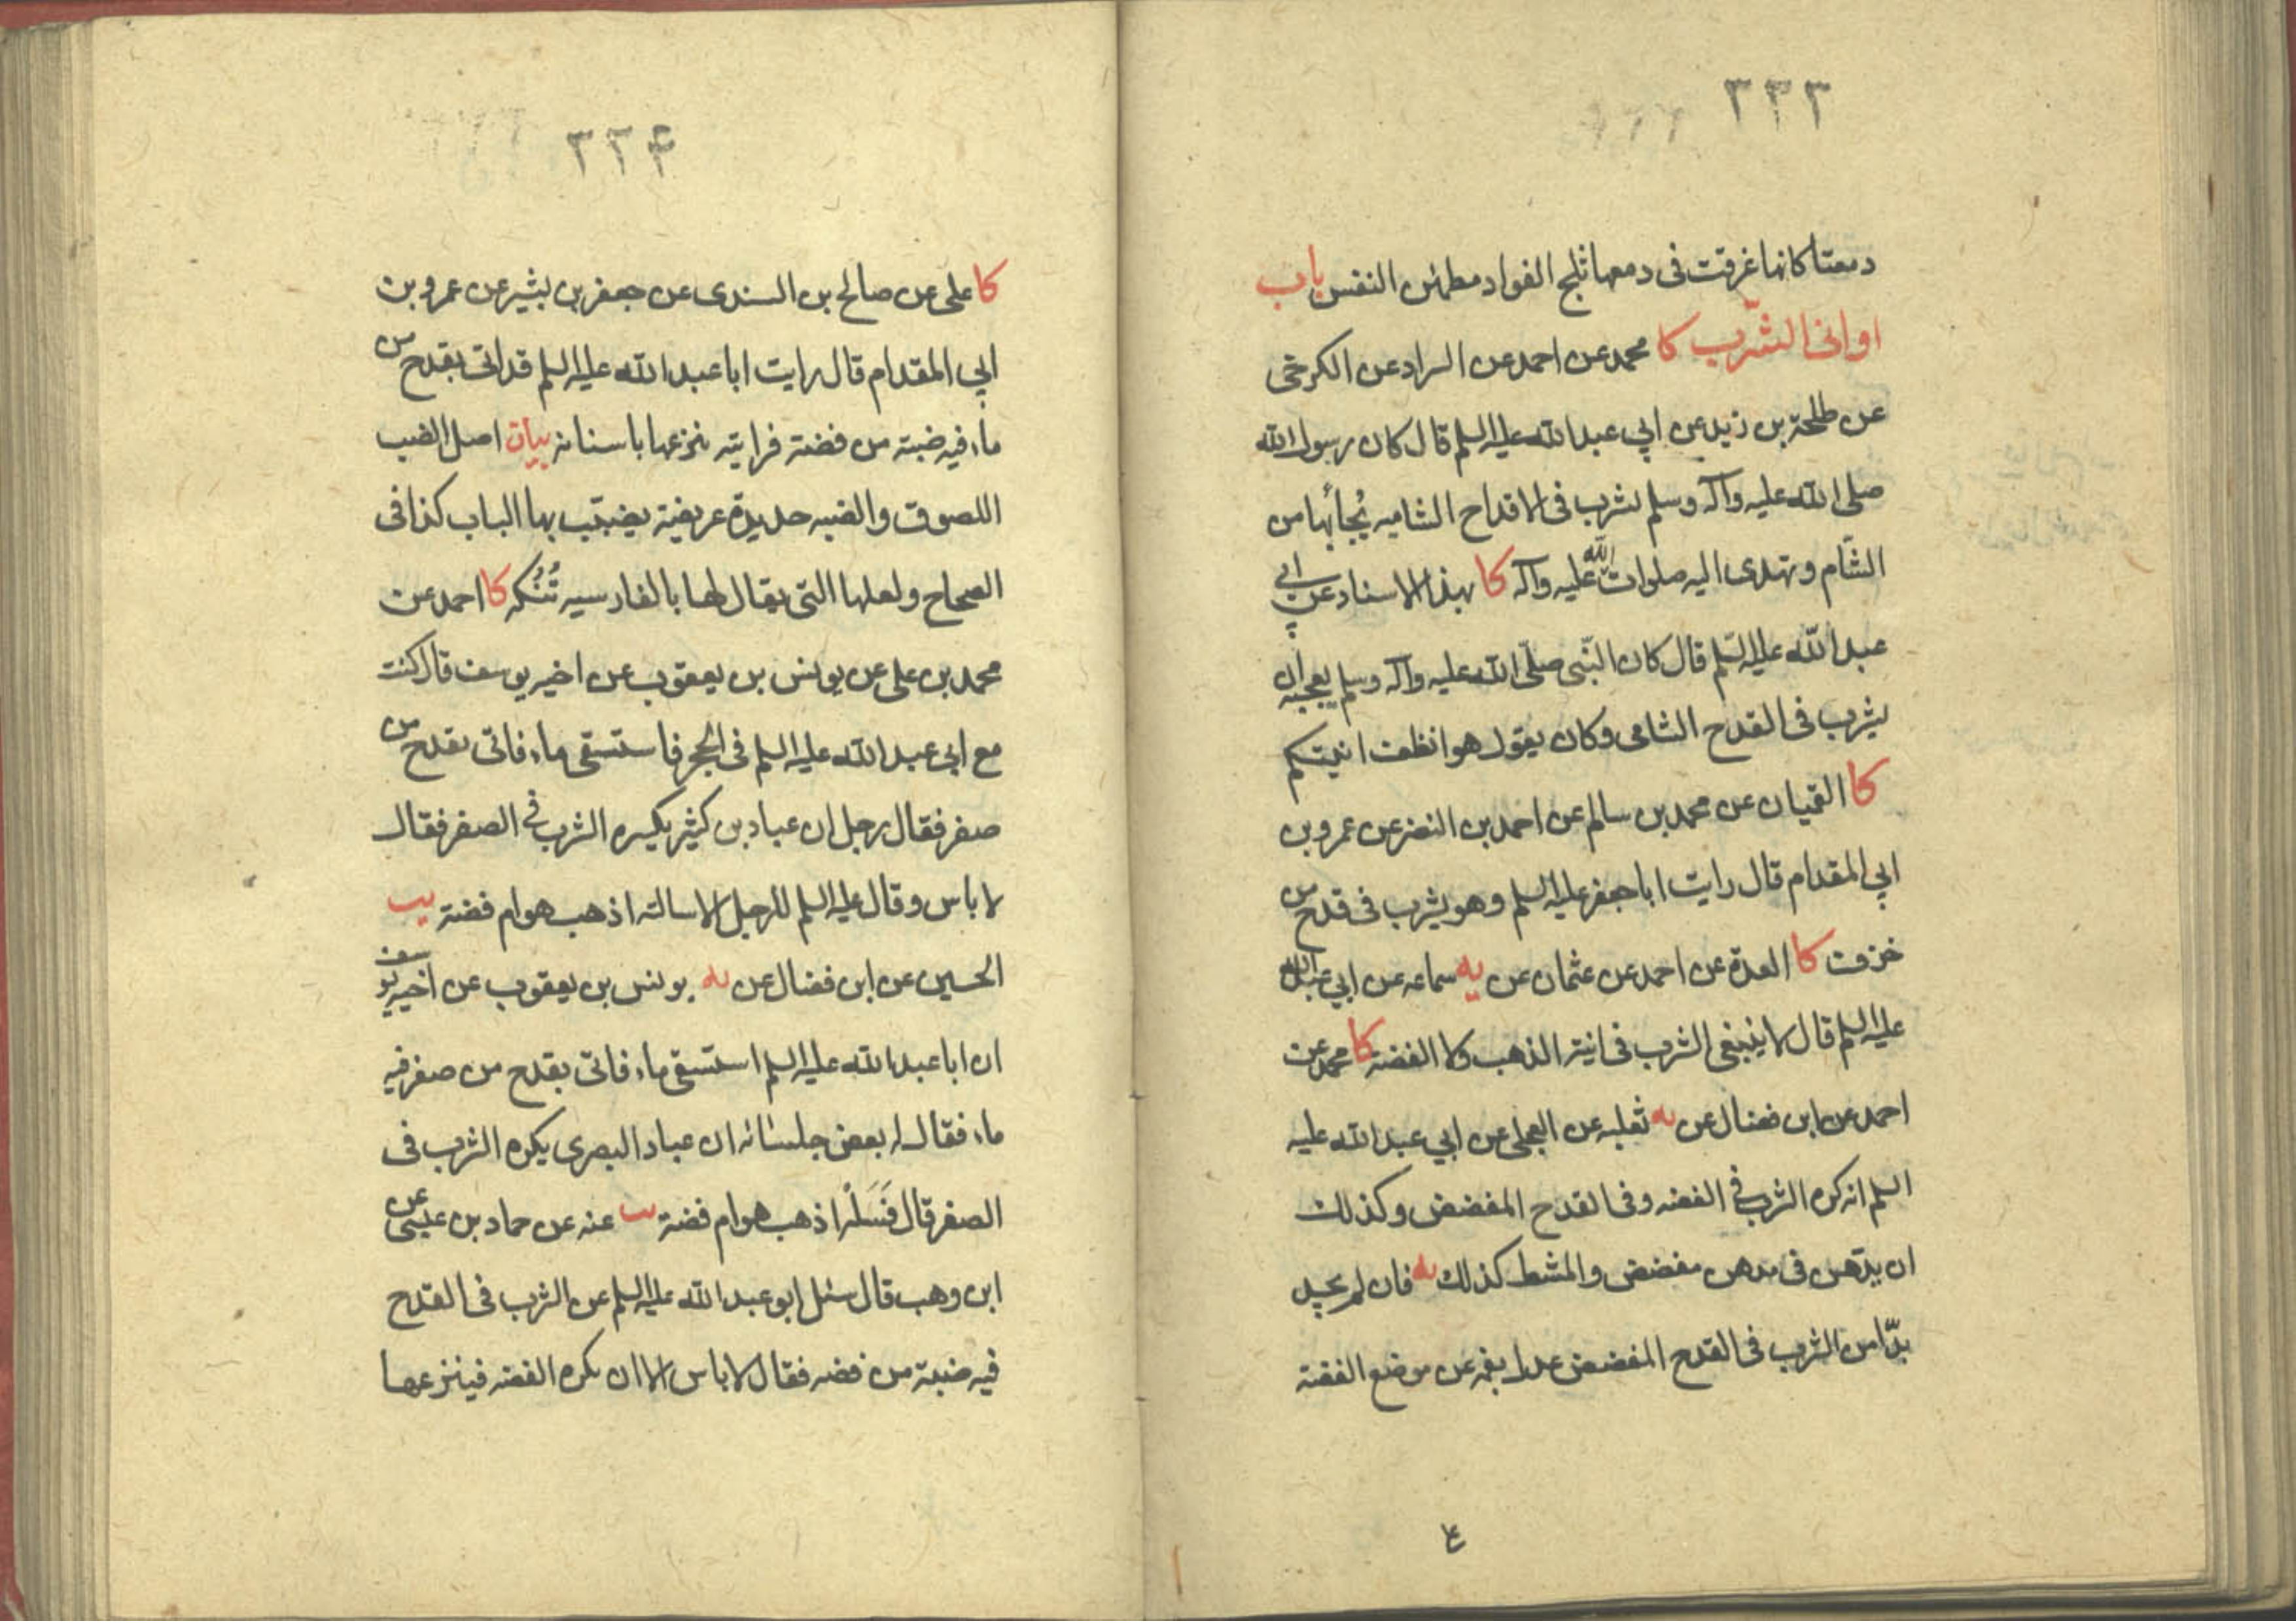 ٣٣٣
دمعتا كانها غرقت فى دمعها ثلج الفواد مطمئن النفس باب
اوانى الشّرب كا محمد عن احمد عن السراد عن الكرخى
عن طلحة بن زيد عن ابي عبد الله عليه السلم قال كان رسول الله
صلى الله عليه وآله وسلم يشرب فى الاقداح الشاميه يُجأبها من
الشّام وتهدى اليه صلوات الله عليه وآله كا بهذا الاسناد عن ابي
عبد الله عليه السّلم قال كان النّبى صلّى الله عليه وآله وسلم يعجبه ان
يشرب فى القدح الشامى وكان يقول هو انظف انيتكم
كا القميان عن محمد بن سالم عن احمد بن النضر عن عمرو بن
ابي المقدام قال رايت ابا جعفر عليه السلم وهو يشرب فى قدح من
خزف كا العدة عن احمد عن عثمان عن يه سماعه عن ابي عبد الله
عليه السلم قال لا ينبغى الشرب فى انية الذهب ولا الفضة كا محمد عن
احمد عن ابن فضال عن يه ثعلبه عن العجلى عن ابي عبد الله عليه
السلم انه كره الشرب فى الفضه وفى القدح المفضض وكذلك
ان يدّهن فى مدهن مفضض والمشط كذلك يه فان لم يجد
بدّا من الشرب فى القدح المفضض عدل بفمه عن موضع الفضة
٣٣۴
كا على عن صالح بن السندى عن جعفر بن بشير عن عمرو بن
ابي المقدام قال رايت ابا عبد الله عليه السلم قد اتى بقدح من
ماء فيه ضبة من فضة فرايته ينزعها باسنانه بيان اصل الضب
اللصوق والضبه حديدة عريضة يضبّب بها الباب كذا فى
الصحاح ولعلها التى يقال لها بالفارسيه تُنُكه كا احمد عن
محمد بن على عن يونس بن يعقوب عن اخيه يوسف قال كنت
مع ابي عبد الله عليه السلم فى الحجر فاستسقى ماء فاتى بقدح من
صفر فقال رجل ان عباد بن كثير يكره الشرب فى الصفر فقال
لا باس وقال عليه السلم للرجل الا سالته اذهب هو ام فضة يب
الحسين عن ابن فضال عن يه يونس بن يعقوب عن اخيه يوسف
ان ابا عبد الله عليه السلم استسقى ماء فاتى بقدح من صفر فيه
ماء فقال له بعض جلسائه ان عباد البصرى يكره الشرب فى
الصفر قال فَسَلْه اذهب هو ام فضة يب عنه عن حماد بن عيسى عن
ابن وهب قال سئل ابو عبد الله عليه السلم عن الشرب فى القدح
فيه ضبة من فضه فقال لا باس الا ان يكره الفضه فينزعها